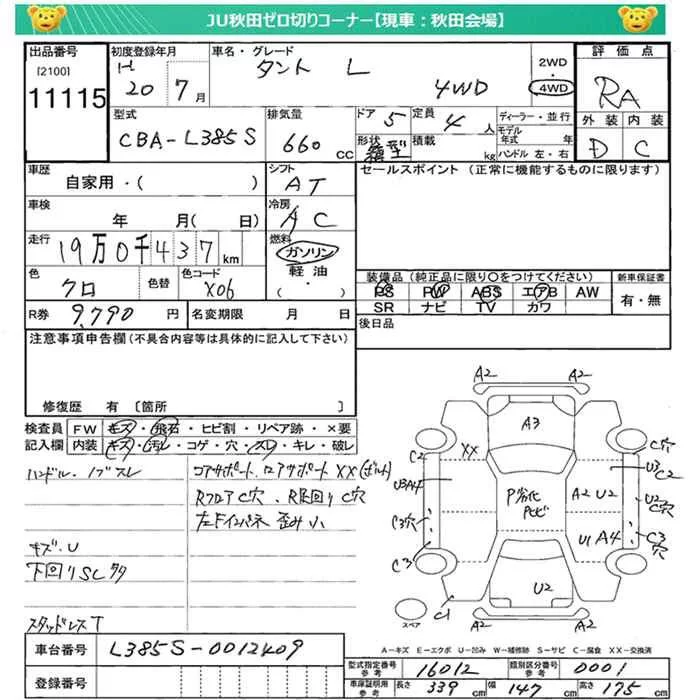 JU秋田ゼロ切りコーナー【現車：秋田会場】
出品番号
[2100]
11115
初度登録年月
H
20 7月
車名・グレード
タント L
4WD
2WD
4WD
評価点
RA
外装 内装
D C
型式
CBA-L385S
排気量
660 CC
ドア 5
形状 箱型
定員 4人
積載 kg
ディーラー・並行
モデル年式 年
ハンドル 左・右
車歴
自家用・( )
シフト
AT
セールスポイント (正常に機能するものに限ります)
車検
年 月( 日)
冷房
AC
走行
19万0千437km
燃料
ガソリン
軽油
・( )
色
クロ
色替
色コード
X06
装備品 (純正品に限り○をつけてください)
新車保証書
PS PW ABS エアB AW
SR ナビ TV カワ
有・無
R券 9,790 円
名変期限 月 日
後日品
注意事項申告欄 (不具合内容等は具体的に記入して下さい)
修復歴 有 〔箇所 〕
検査員記入欄
FW キズ・飛石・ヒビ割・リペア跡・×要
内装 キズ・汚レ・コゲ・穴・スレ・キレ・破レ
ハンドル・ノブスレ
コアサポート、ロアサポート XX(ボルト)
Rフロア C穴、R足回り C穴
左Fインパネ 歪み小
キズ・U
下回りSC多
スタッドレスT
A2 A2
A3
XX
C2
U3A4
C3穴
C3
C1
P劣化
Pヒビ
A2 U2
U1 A4
U2
C穴
U3
C2
U2 C穴
C3
C穴
A2 A2
スペア
A-キズ E-エクボ U-凹み W-補修跡 S-サビ C-腐食 XX-交換済
車台番号
L385S-0012409
登録番号
型式指定番号 参考 16012
類別区分番号 参考 0001
車庫証明用 参考
長さ 339 cm 幅 147 cm 高さ 175 cm